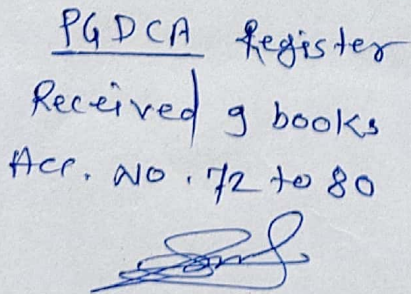 PGDCA Register
Received 9 books
Acc. No. 72 to 80